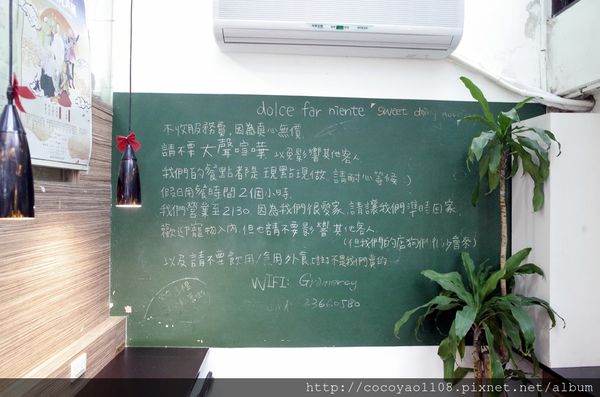 dolce far niente "sweet doing
不收服務費，因為真心無價
請不要大聲喧嘩 以免影響其他客人
我們的餐點都是現點現做 請耐心等候
假日用餐時間2個小時
我們營業至2130，因為我們很愛家，請讓我們準時回家
歡迎寵物入內，但也請不要影響其他客人
(但我們的店狗們
以及請不要飲用/食用外食 不是我們賣的
WIFI: Gramercy
23660580
http://cocoyao1108.pixnet.net/album